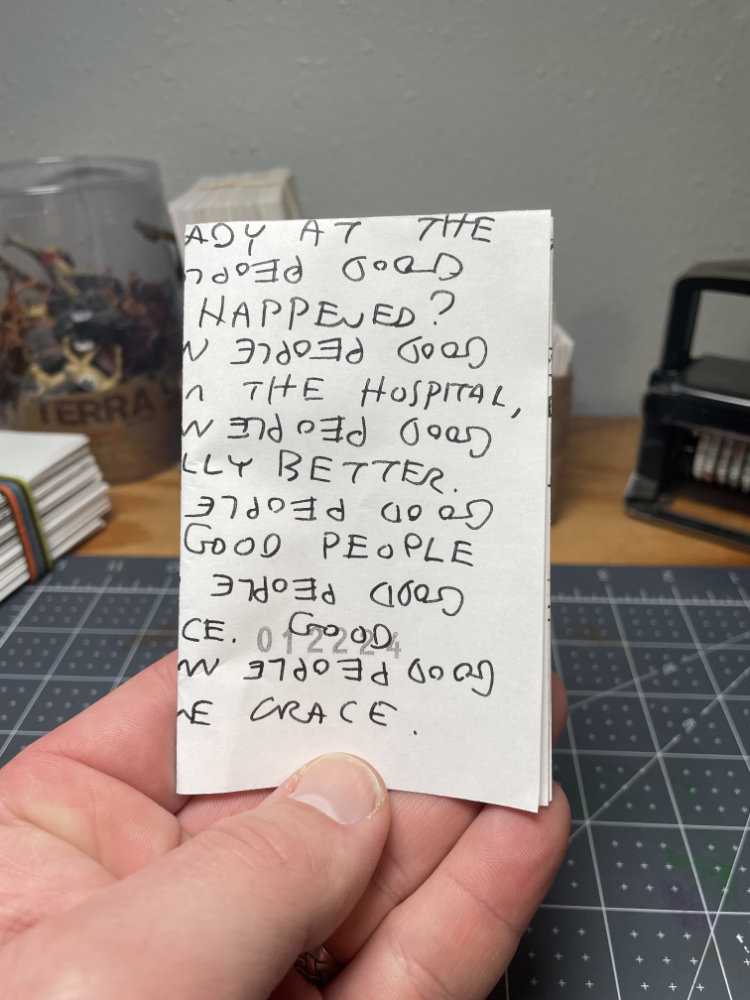 ADY AT THE
GOOD PEOPL
HAPPENED?
GOOD PEOPLE
THE HOSPITAL,
GOOD PEOPLE
LLY BETTER.
GOOD PEOPLE
GOOD PEOPLE
GOOD PEOPLE
CE. GOOD
012224
GOOD PEOPLE
E GRACE.
TERRA